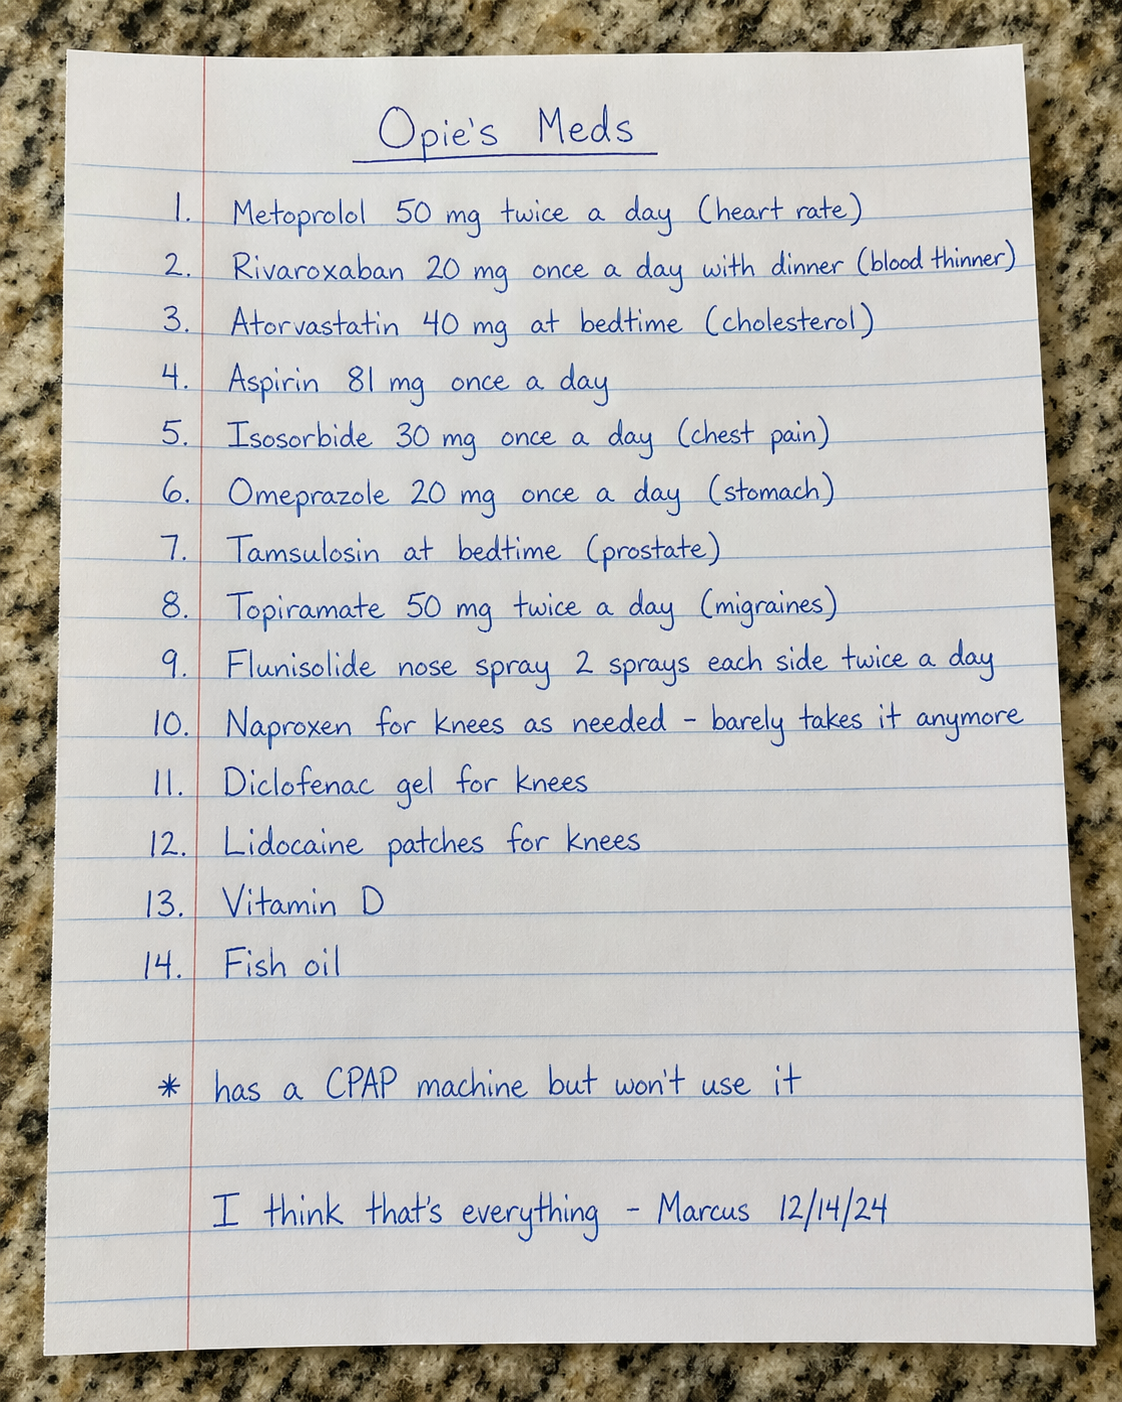 Opie's Meds
1. Metoprolol 50 mg twice a day (heart rate)
2. Rivaroxaban 20 mg once a day with dinner (blood thinner)
3. Atorvastatin 40 mg at bedtime (cholesterol)
4. Aspirin 81 mg once a day
5. Isosorbide 30 mg once a day (chest pain)
6. Omeprazole 20 mg once a day (stomach)
7. Tamsulosin at bedtime (prostate)
8. Topiramate 50 mg twice a day (migraines)
9. Flunisolide nose spray 2 sprays each side twice a day
10. Naproxen for knees as needed - barely takes it anymore
11. Diclofenac gel for knees
12. Lidocaine patches for knees
13. Vitamin D
14. Fish oil
* has a CPAP machine but won't use it
I think that's everything - Marcus 12/14/24